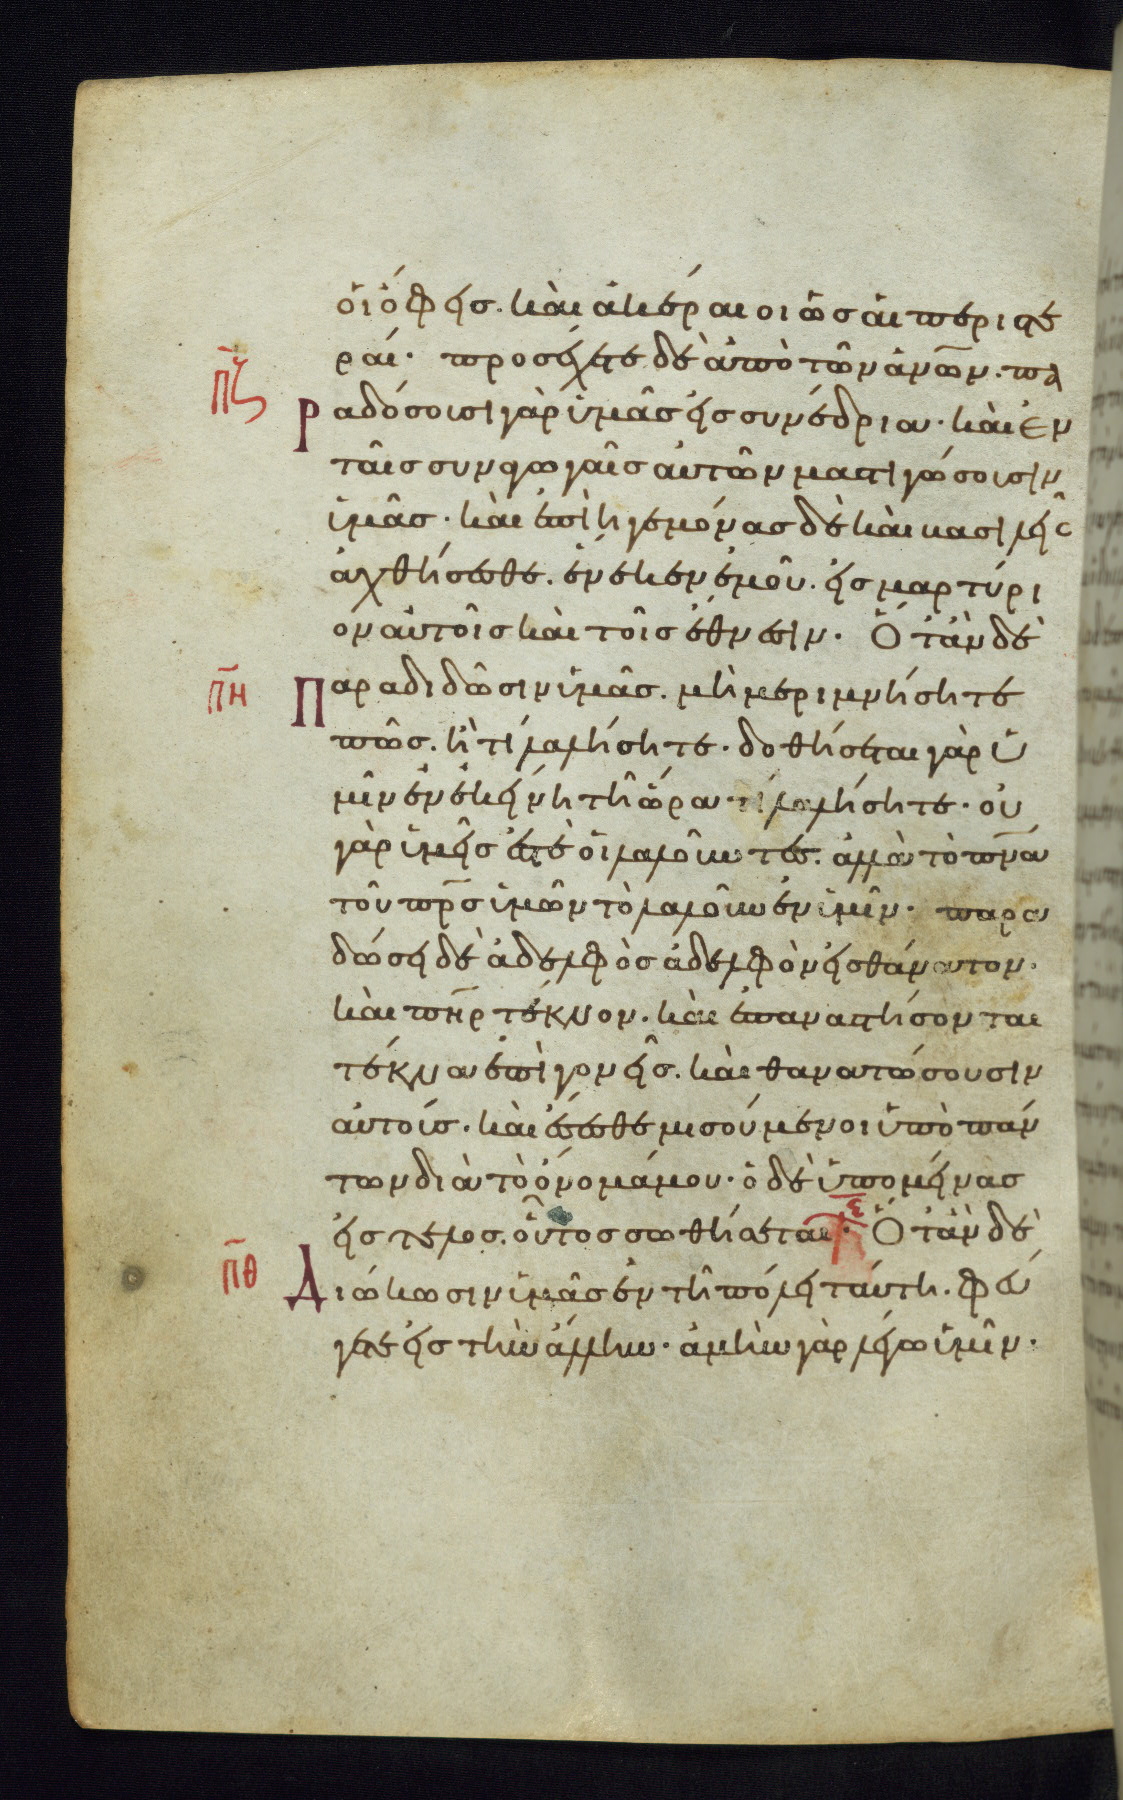 οἱ ὄφεις. καὶ ἀκέραιοι ὡς αἱ περιστε
ραί. προσέχετε δὲ ἀπὸ τῶν ἀν̅ω̅ν. πα
π̅ζ
ραδόσουσι γὰρ ὑμᾶς εἰς συνέδρια. καὶ ἐν
ταῖς συναγωγαῖς αὐτῶν μαστιγώσουσιν
ὑμᾶς. καὶ ἐπὶ ἡγεμόνας δὲ καὶ βασιλεῖς
ἀχθήσεσθε. ἕνεκεν ἐμοῦ. εἰς μαρτύρι
ον αὐτοῖς καὶ τοῖς ἔθνεσιν. Ὅταν δὲ
π̅η
Παραδιδῶσιν ὑμᾶς. μὴ μεριμνήσητε
πῶς. ἢ τί λαλήσητε. δοθήσεται γὰρ ὑ
μῖν ἐν ἐκείνη τῆ ὥρα τί λαλήσητε. οὐ
γὰρ ὑμεῖς ἐστὲ οἱ λαλοῦντες. ἀλλὰ τὸ πν̅α
τοῦ πρ̅ς ὑμῶν τὸ λαλοῦν ἐν ὑμῖν. παρα
δώσει δὲ ἀδελφὸς ἀδελφὸν εἰς θάνατον.
καὶ πη̅ρ τέκνον. καὶ ἐπαναστήσονται
τέκνα ἐπὶ γονεῖς. καὶ θανατώσουσιν
αὐτούς. καὶ ἔσεσθε μισούμενοι ὑπὸ πάν
των διὰ τὸ ὄνομά μου. ὁ δὲ ὑπομείνας
εἰς τέλος. οὗτος σωθήσεται. Ὅταν δὲ
π̅θ
Διώκωσιν ὑμᾶς ἐν τῆ πόλει ταύτη. φεύ
γετε εἰς τὴν ἄλλην. ἀμὴν γὰρ λέγω ὑμῖν.